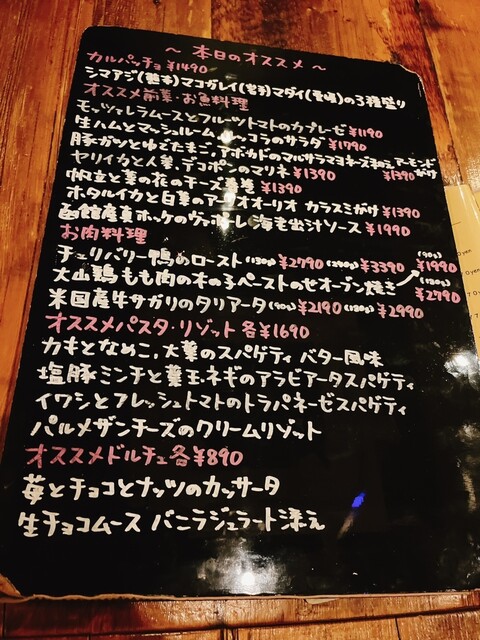 ～ 本日のオススメ ～
カルパッチョ ¥1490
シマアジ() マコガレイ() マダイ()の3種盛り
オススメ前菜・お魚料理
モッツァレラムースとフルーツトマトのカプレーゼ ¥1190
生ハムとマッシュルーム ルッコラのサラダ ¥1790
豚ガツとゆでたまご、アボカドのマルサラマヨネーズ和え アーモンドがけ ¥1390
ヤリイカと人参、デコポンのマリネ ¥1390
帆立と菜の花のチーズ ¥1390
ホタルイカと白菜のアーリオオーリオ カラスミがけ ¥1390
函館産真ホッケのヴァポーレ 海老出汁ソース ¥1990
お肉料理
チェリバリー鴨のロースト (130g) ¥2790 (200g) ¥3390
大山鶏もも肉の木の子ペーストのせオーブン焼き (90g) ¥1990 (180g) ¥2990
米国産牛サガリのタリアータ (90g) ¥2190 (180g) ¥2990
オススメパスタ・リゾット 各¥1690
カキとなめこ、大葉のスパゲティ バター風味
塩豚ミンチと葉玉ネギのアラビアータスパゲティ
イワシとフレッシュトマトのトラパネーゼスパゲティ
パルメザンチーズのクリームリゾット
オススメドルチェ各¥890
苺とチョコとナッツのカッサータ
生チョコムース バニラジェラート添え